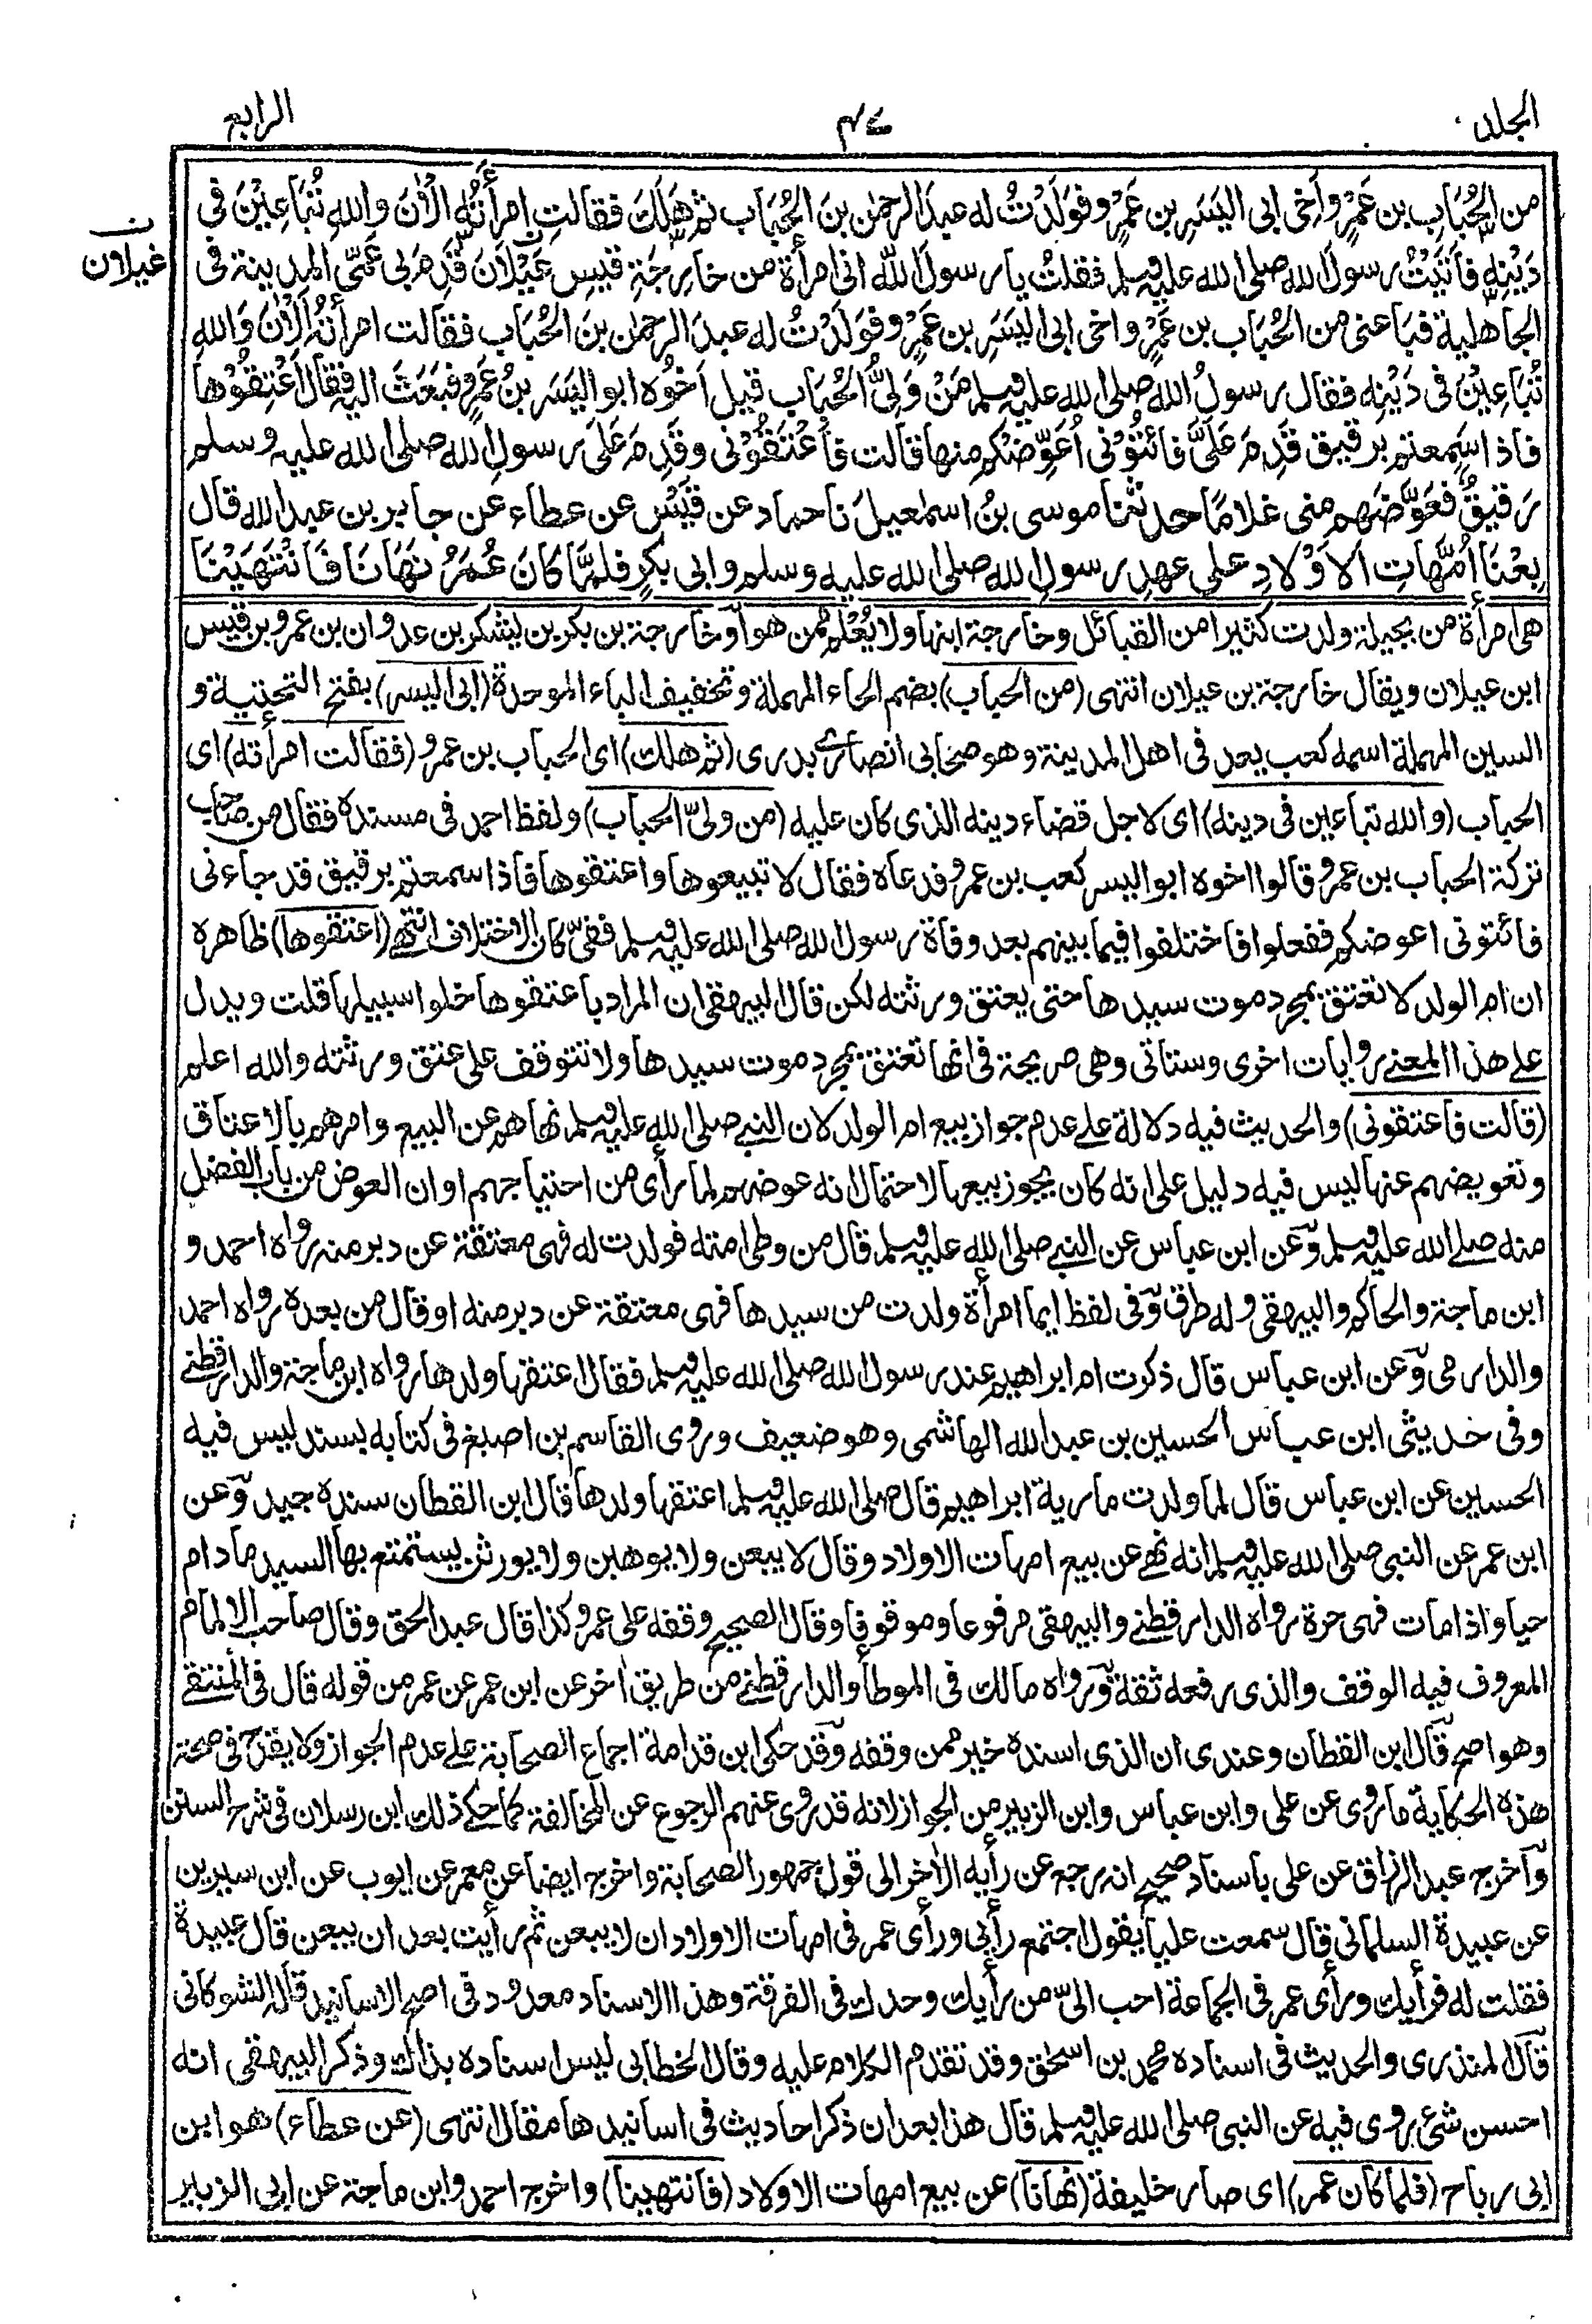 الجلد
٤٧
الرابع
من الحُبَابِ بن عَمْرٍو اَخِى ابى اليَسَرِ بن عَمْرٍو فولَدْتُ له عبدَ الرحمٰن بنَ الحُبَاب ثم هَلَكَ فقالتِ امرأتُه الْاٰنَ واللهِ تُبَاعِيْنَ فى
دَيْنِه فاتَيْتُ رسولَ الله صلى الله عليه وسلم فقلتُ يا رسولَ الله انى امرأة من خارِجَةِ قيسِ عَيْلَانَ قَدِمَ بى عَمِّى المدينة فى
الجاهلية فبَاعنى من الحُبَاب بن عَمْرٍو اخى ابى اليَسَرِ بن عَمْرٍو فولَدْتُ له عبدَ الرحمٰن بنَ الحُبَاب فقالت امرأتُه الْاٰنَ وَاللهِ
تُبَاعِيْنَ فى دَيْنِه فقال رسولُ الله صلى الله عليه وسلم مَنْ وَلِىُّ الحُبَاب قيل اَخُوْه ابو اليَسَر بنُ عَمْرٍو فبَعَثَ اليه فقال اَعْتِقُوْها
فاذا سَمِعتم برقيق قَدِمَ عَلَىَّ فائتُوْنى اُعَوِّضْكم منها قالت فأَعْتَقُوْنى وقَدِمَ عَلَى رسولِ الله صلى الله عليه وسلم
رَقيقٌ فعَوَّضَهم منى غلامًا حدثَنا موسى بنُ اسمٰعيلَ نا حماد عن قَيْس عن عطاء عن جابر بن عبد الله قال
بِعْنَا اُمَّهَاتِ الاَوْلَادِ على عهدِ رسولِ الله صلى الله عليه وسلم وابى بكرٍ فلمَّا كَانَ عُمَرُ نَهَانَا فَانْتَهَيْنَا
غيلان
هى امرأة من بجيلة ولدت كثيرا من القبائل وخارجة ابنها ولا يُعْلم ممن هو اَو خارجة بن بكر بن يشكر بن عدوان بن عمرو بن قيس
ابن عيلان ويقال خارجة بن عيلان انتهى (من الحباب) بضم الحاء المهملة وتخفيف الباء الموحدة (ابى اليسر) بفتح التحتية و
السين المهملة اسمه كعب يعد فى اهل المدينة وهو صحابى انصارى بدرى (ثم هلك) اى الحباب بن عمرو (فقالت امرأته) اى
الحباب (والله تباعين فى دينه) اى لاجل قضاء دينه الذى كان عليه (من ولىّ الحباب) ولفظ احمد فى مسنده فقال من صاحب
تركة الحباب بن عمرو قالوا اخوه ابو اليسر كعب بن عمرو فدعاه فقال لا تبيعوها واعتقوها فاذا سمعتم برقيق قد جاءنى
فائتونى اعوضكم ففعلوا فاختلفوا فيما بينهم بعد وفاة رسول الله صلى الله عليه وسلم ففىّ كان الاختلاف انتهى (اعتقوها) ظاهره
ان ام الولد لا تعتق بمجرد موت سيدها حتى يعتق ورثته لكن قال البيهقى ان المراد باعتقوها خلوا سبيلها قلت ويدل
على هذا المعنى روايات اخرى وستاتى وهى صريحة فى انها تعتق بمجرد موت سيدها ولا تتوقف على عتق ورثته والله اعلم
(قالت فاعتقونى) والحديث فيه دلالة على عدم جواز بيع ام الولد لان النبى صلى الله عليه وسلم نهاهم عن البيع وامرهم بالاعتاق
وتعويضهم عنها ليس فيه دليل على انه كان يجوز بيعها لاحتمال انه عوضهم لما رأى من احتياجهم او ان العوض من باب الفضل
منه صلى الله عليه وسلم وَعن ابن عباس عن النبى صلى الله عليه وسلم قال من وطى امته فولدت له فهى معتقة عن دبر منه رواه احمد و
ابن ماجة والحاكم والبيهقى وله طرق وَفى لفظ ايما امرأة ولدت من سيدها فهى معتقة عن دبر منه او قال من بعده رواه احمد
والدارمى وَعن ابن عباس قال ذكرت ام ابراهيم عند رسول الله صلى الله عليه وسلم فقال اعتقها ولدها رواه ابن ماجة والدارقطنى
وفى حديثى ابن عباس الحسين بن عبد الله الهاشمى وهو ضعيف وروى القاسم بن اصبغ فى كتابه بسند ليس فيه
الحسين عن ابن عباس قال لما ولدت مارية ابراهيم قال صلى الله عليه وسلم اعتقها ولدها قال ابن القطان سنده جيد وَعن
ابن عمر عن النبى صلى الله عليه وسلم انه نهى عن بيع امهات الاولاد وقال لا يبعن ولا يوهبن ولا يورثن يستمتع بها السيد ما دام
حيا واذا مات فهى حرة رواه الدارقطنى والبيهقى مرفوعا وموقوفا وقال الصحيح وقفه على عمر وكذا قال عبد الحق وقال صاحب الالمام
المعروف فيه الوقف والذى رفعه ثقة وَرواه مالك فى الموطأ والدارقطنى من طريق اٰخر عن ابن عمر عن عمر من قوله قال فى المنتقى
وهو اصح قَال ابن القطان وعندى ان الذى اسنده خير ممن وقفه وَقد حكى ابن قدامة اجماع الصحابة على عدم الجواز ولا يقدح فى صحة
هذه الحكاية ما روى عن على وابن عباس وابن الزبير من الجواز لانه قد روى عنهم الرجوع عن المخالفة كما حكى ذلك ابن رسلان فى شرح السنن
وَاَخرج عبد الرزاق عن على باسناد صحيح انه رجع عن رأيه الاٰخر الى قول جمهور الصحابة واخرج ايضا عن معمر عن ايوب عن ابن سيرين
عن عبيدة السلمانى قال سمعت عليا يقول اجتمع رأيى ورأى عمر فى امهات الاولاد ان لا يبعن ثم رأيت بعد ان يبعن قال عبيدة
فقلت له فرأيك ورأى عمر فى الجماعة احب الىّ من رأيك وحدك فى الفرقة وهذا الاسناد معدود فى اصح الاسانيد قاله الشوكانى
قَال المنذرى والحديث فى اسناده محمد بن اسحٰق وقد تقدم الكلام عليه وقال الخطابى ليس اسناده بذاك وذكر البيهقى انه
احسن شئ روى فيه عن النبى صلى الله عليه وسلم قال هذا بعد ان ذكر احاديث فى اسانيدها مقال انتهى (عن عطاء) هو ابن
ابى رباح (فلما كان عمر) اى صار خليفة (نهانا) عن بيع امهات الاولاد (فانتهينا) واخرج احمد وابن ماجة عن ابى الزبير